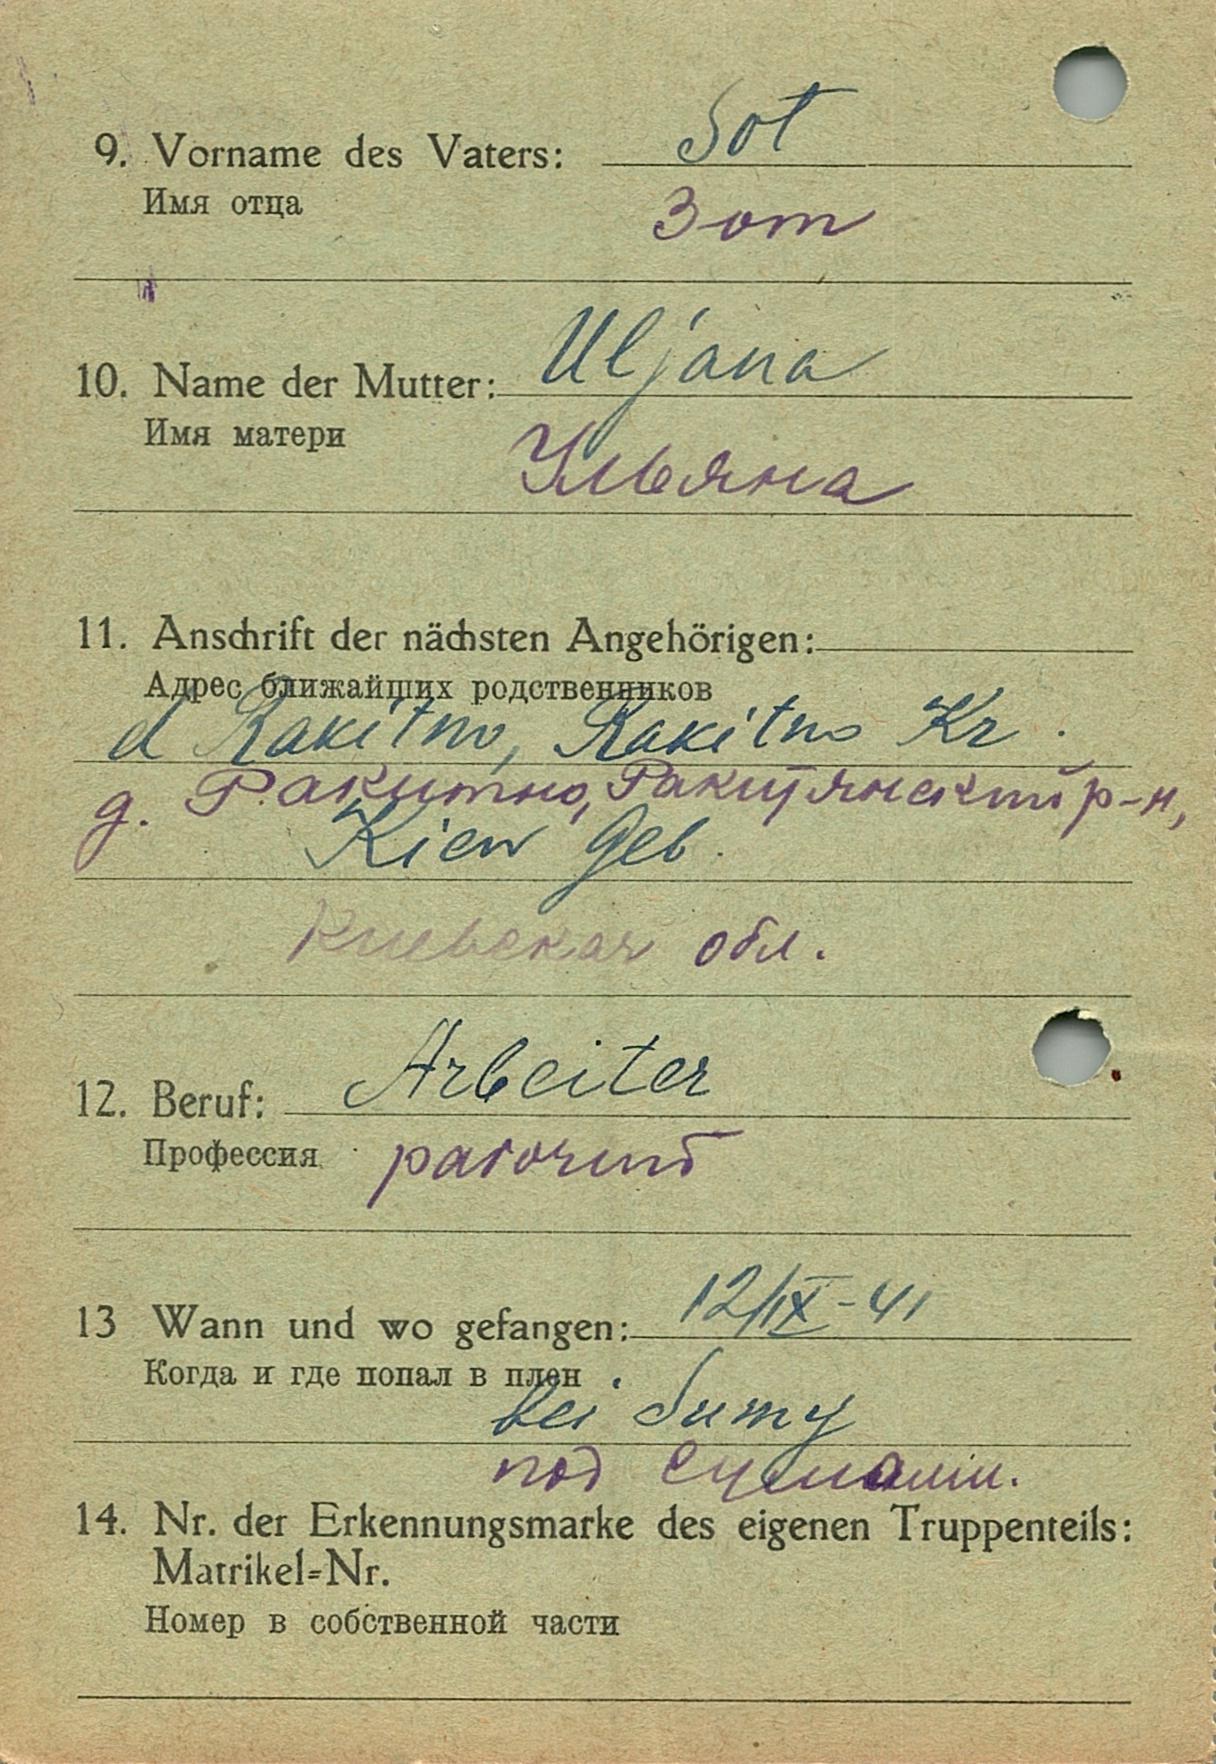 9. Vorname des Vaters: Sot
Имя отца Зот
10. Name der Mutter: Uljana
Имя матери Ульяна
11. Anschrift der nächsten Angehörigen:
Адрес ближайших родственников
d Rakitno, Rakitno Kr.
д. Ракитно, Ракитянский р-н,
Kiew Geb.
Киевская обл.
12. Beruf: Arbeiter
Профессия рабочий
13 Wann und wo gefangen: 12/IX-41
Когда и где попал в плен
bei Sumy
под Сумами.
14. Nr. der Erkennungsmarke des eigenen Truppenteils:
Matrikel=Nr.
Номер в собственной части